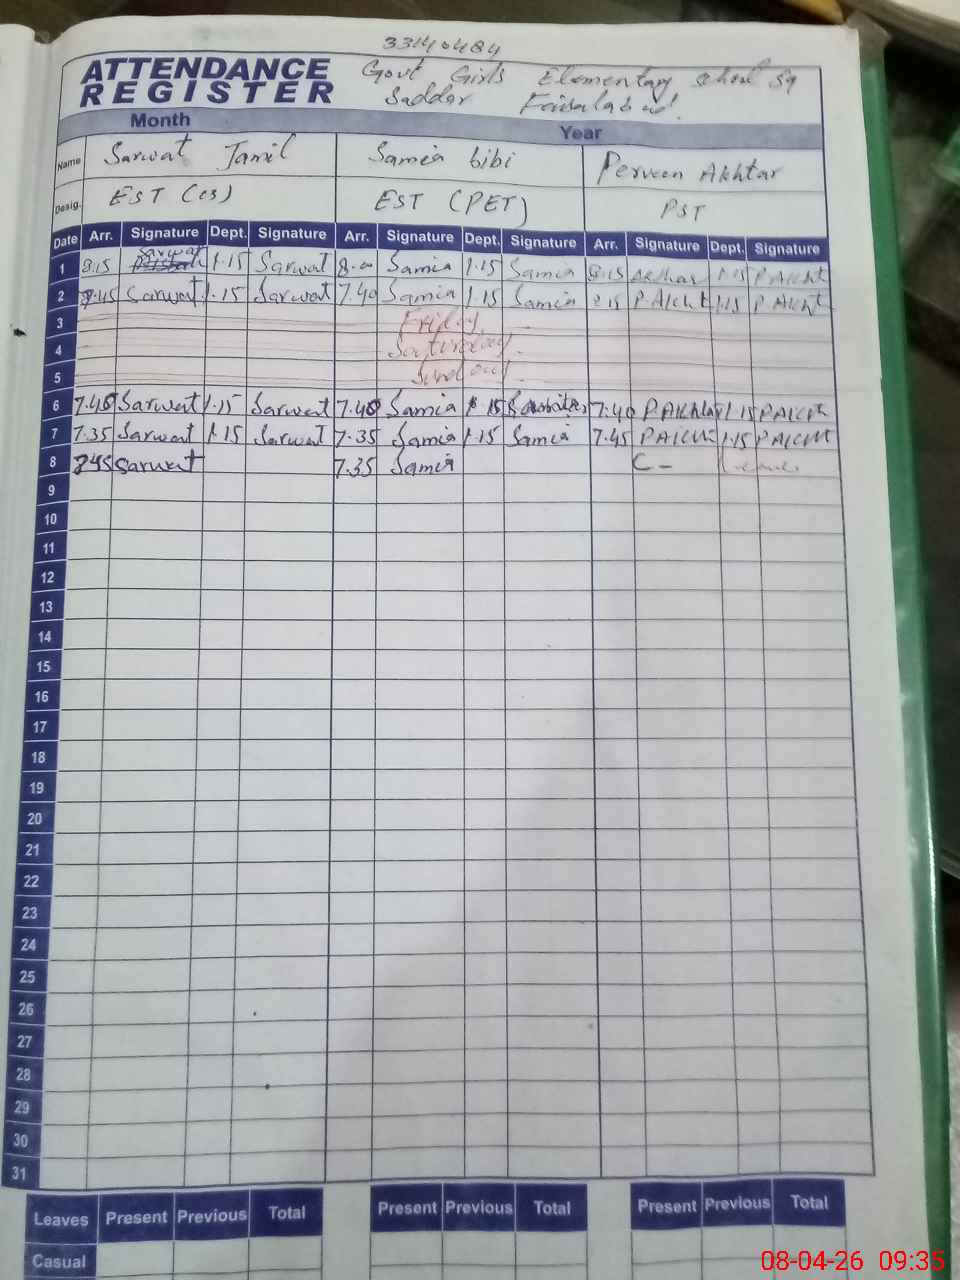 33140484
ATTENDANCE REGISTER
Govt Girls Elementary school
Saddar Faisalabad
Month Year
Name Sarwat Jamil Samia bibi Perveen Akhtar
Desig. EST EST (PET) PST
Date Arr. Signature Dept. Signature Arr. Signature Dept. Signature Arr. Signature Dept. Signature
1 8:15 Sarwat 1.15 Sarwat 8.00 Samia 1.15 Samia 8:15 Akhtar 1.15 P.AKht
2 7.45 Sarwat 1.15 Sarwat 7.40 Samia 1.15 Samia P.AKht 1.15 P.AKht
3 Friday
4 Saturday
5 Sunday
6 7.40 Sarwat 1.15 Sarwat 7.40 Samia 1.15 7:40 P.AKhtar 1.15 P.AKht
7 7.35 Sarwat 1.15 Sarwat 7.35 Samia 1.15 Samia 7.45 P.AKht 1.15 P.AKht
8 Sarwat 7.35 Samia C- Leave
9
10
11
12
13
14
15
16
17
18
19
20
21
22
23
24
25
26
27
28
29
30
31
Leaves Present Previous Total Present Previous Total Present Previous Total
Casual
08-04-26 09:35